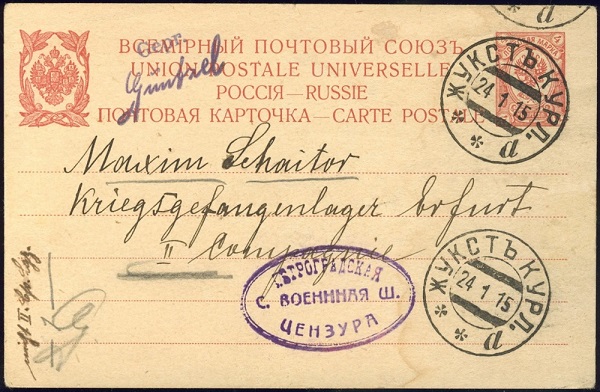 ВСЕМІРНЫЙ ПОЧТОВЫЙ СОЮЗЪ.
UNION POSTALE UNIVERSELLE.
РОССІЯ—RUSSIE
ПОЧТОВАЯ КАРТОЧКА—CARTE POSTALE
ЖУКСТЪ КУРЛ.
24 1 15
а
Maxim Schaitor
Kriegsgefangenlager Erfurt
II Compagnie
ПЕТРОГРАДСКАЯ
С. ВОЕННАЯ Ш.
ЦЕНЗУРА
ЖУКСТЪ КУРЛ.
24 1 15
а
а